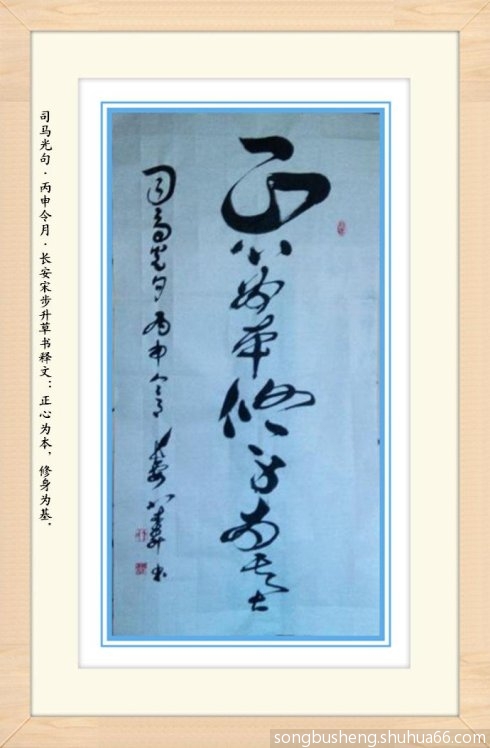 正心为本修身为基
司马光句丙申令月长安步升书
司马光句·丙申令月·长安宋步升草书释文：正心为本，修身为基．
songbusheng.shuhua66.com